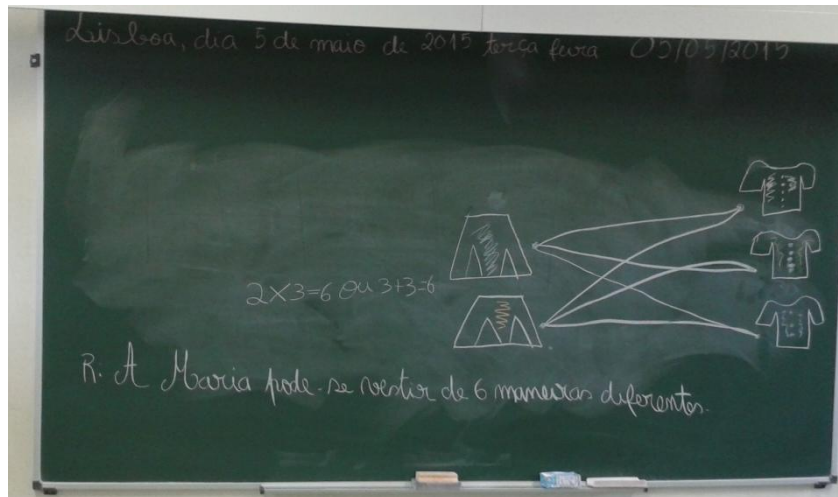 Lisboa, dia 5 de maio de 2015 terça feira 05/05/2015
2×3=6 ou 3+3=6
R: A Maria pode-se vestir de 6 maneiras diferentes.